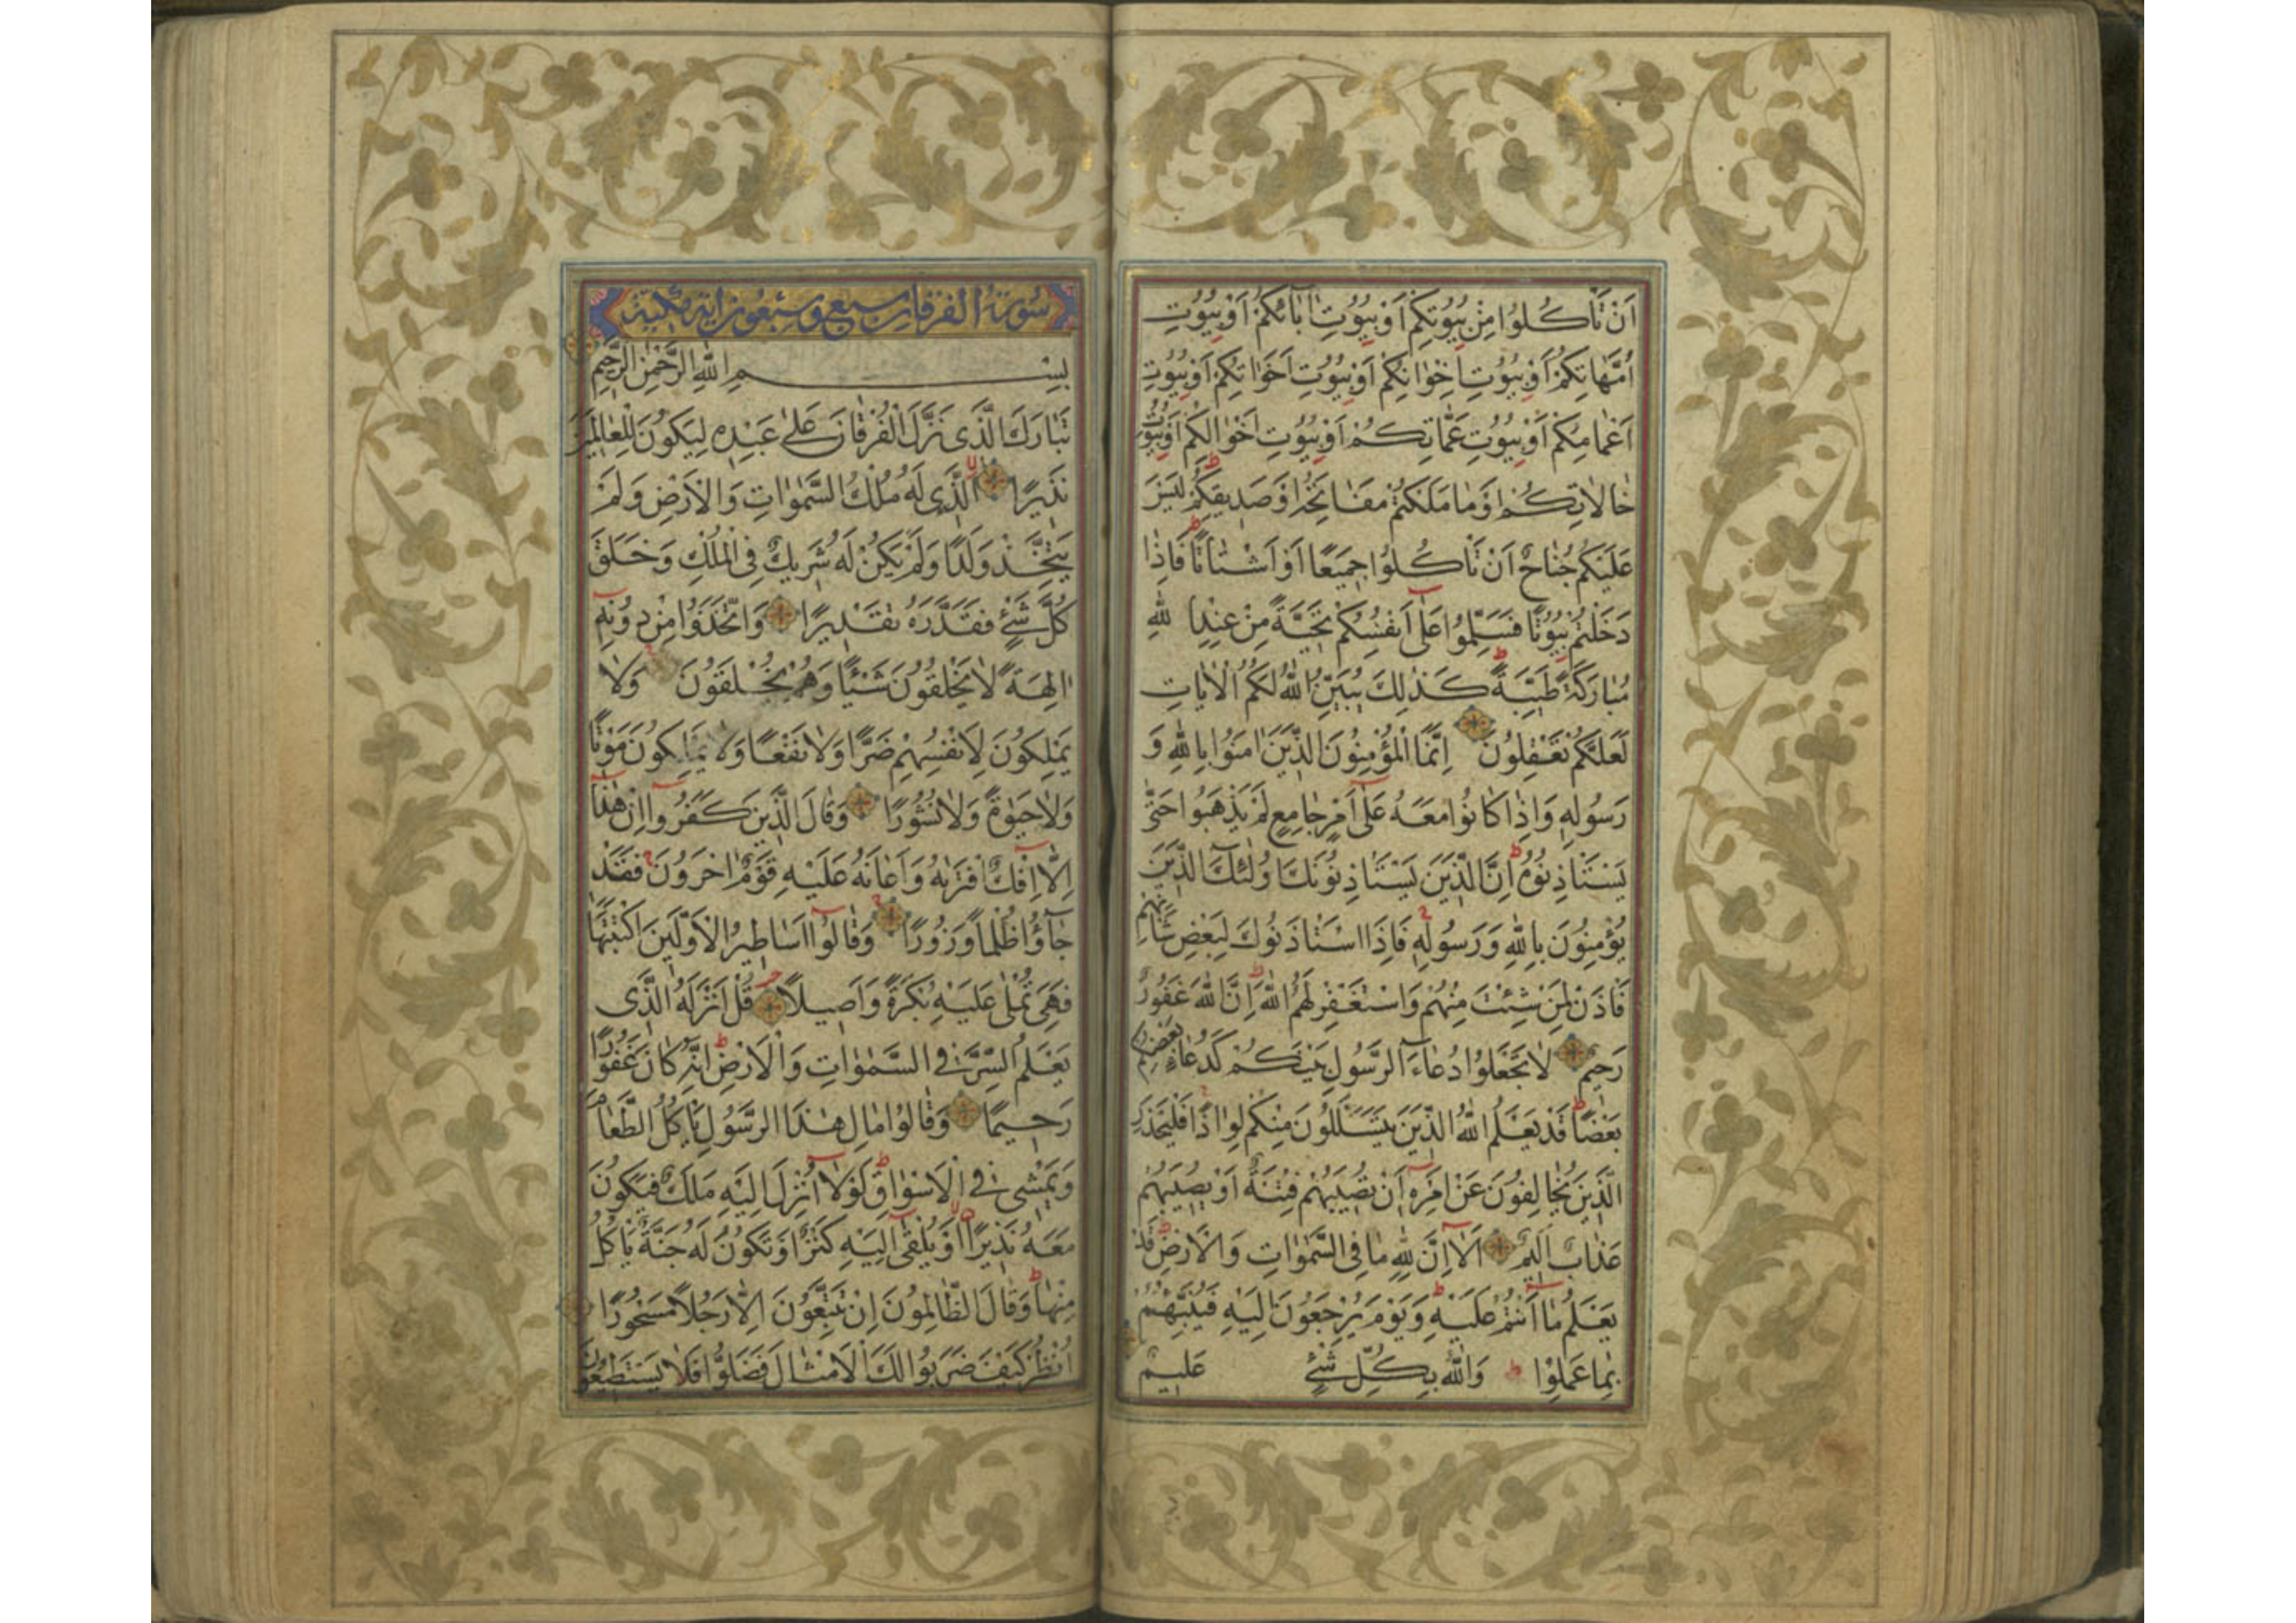 اَنْ تَأْكُلُوا مِنْ بُيُوتِكُمْ اَوْ بُيُوتِ اٰبَائِكُمْ اَوْ بُيُوتِ
اُمَّهَاتِكُمْ اَوْ بُيُوتِ اِخْوَانِكُمْ اَوْ بُيُوتِ اَخَوَاتِكُمْ اَوْ بُيُوتِ
اَعْمَامِكُمْ اَوْ بُيُوتِ عَمَّاتِكُمْ اَوْ بُيُوتِ اَخْوَالِكُمْ اَوْ بُيُوتِ
خَالَاتِكُمْ اَوْ مَا مَلَكْتُمْ مَفَاتِحَهُ اَوْ صَدِيقِكُمْ لَيْسَ
عَلَيْكُمْ جُنَاحٌ اَنْ تَأْكُلُوا جَمِيعًا اَوْ اَشْتَاتًا فَاِذَا
دَخَلْتُمْ بُيُوتًا فَسَلِّمُوا عَلٰٓى اَنْفُسِكُمْ تَحِيَّةً مِنْ عِنْدِ اللّٰهِ
مُبَارَكَةً طَيِّبَةً كَذٰلِكَ يُبَيِّنُ اللّٰهُ لَكُمُ الْاٰيَاتِ
لَعَلَّكُمْ تَعْقِلُونَ اِنَّمَا الْمُؤْمِنُونَ الَّذِينَ اٰمَنُوا بِاللّٰهِ وَ
رَسُولِهِ وَاِذَا كَانُوا مَعَهُ عَلٰٓى اَمْرٍ جَامِعٍ لَمْ يَذْهَبُوا حَتّٰى
يَسْتَأْذِنُوهُ اِنَّ الَّذِينَ يَسْتَأْذِنُونَكَ اُولٰئِكَ الَّذِينَ
يُؤْمِنُونَ بِاللّٰهِ وَرَسُولِهِ فَاِذَا اسْتَأْذَنُوكَ لِبَعْضِ شَأْنِهِمْ
فَأْذَنْ لِمَنْ شِئْتَ مِنْهُمْ وَاسْتَغْفِرْ لَهُمُ اللّٰهَ اِنَّ اللّٰهَ غَفُورٌ
رَحِيمٌ لَا تَجْعَلُوا دُعَاءَ الرَّسُولِ بَيْنَكُمْ كَدُعَاءِ بَعْضِكُمْ
بَعْضًا قَدْ يَعْلَمُ اللّٰهُ الَّذِينَ يَتَسَلَّلُونَ مِنْكُمْ لِوَاذًا فَلْيَحْذَرِ
الَّذِينَ يُخَالِفُونَ عَنْ اَمْرِهِ اَنْ تُصِيبَهُمْ فِتْنَةٌ اَوْ يُصِيبَهُمْ
عَذَابٌ اَلِيمٌ اَلَآ اِنَّ لِلّٰهِ مَا فِي السَّمٰوَاتِ وَالْاَرْضِ قَدْ
يَعْلَمُ مَا اَنْتُمْ عَلَيْهِ وَيَوْمَ يُرْجَعُونَ اِلَيْهِ فَيُنَبِّئُهُمْ
بِمَا عَمِلُوا وَاللّٰهُ بِكُلِّ شَيْءٍ عَلِيمٌ
سورة الفرقان سبع وسبعون اية مكية
بِسْمِ اللّٰهِ الرَّحْمٰنِ الرَّحِيمِ
تَبَارَكَ الَّذِي نَزَّلَ الْفُرْقَانَ عَلٰى عَبْدِهِ لِيَكُونَ لِلْعَالَمِينَ
نَذِيرًا اَلَّذِي لَهُ مُلْكُ السَّمٰوَاتِ وَالْاَرْضِ وَلَمْ
يَتَّخِذْ وَلَدًا وَلَمْ يَكُنْ لَهُ شَرِيكٌ فِي الْمُلْكِ وَخَلَقَ
كُلَّ شَيْءٍ فَقَدَّرَهُ تَقْدِيرًا وَاتَّخَذُوا مِنْ دُونِهِٓ
اٰلِهَةً لَا يَخْلُقُونَ شَيْئًا وَهُمْ يُخْلَقُونَ وَلَا
يَمْلِكُونَ لِاَنْفُسِهِمْ ضَرًّا وَلَا نَفْعًا وَلَا يَمْلِكُونَ مَوْتًا
وَلَا حَيٰوةً وَلَا نُشُورًا وَقَالَ الَّذِينَ كَفَرُوا اِنْ هٰذَا
اِلَّا اِفْكٌ افْتَرٰيهُ وَاَعَانَهُ عَلَيْهِ قَوْمٌ اٰخَرُونَ فَقَدْ
جَآؤُا ظُلْمًا وَزُورًا وَقَالُوا اَسَاطِيرُ الْاَوَّلِينَ اكْتَتَبَهَا
فَهِيَ تُمْلٰى عَلَيْهِ بُكْرَةً وَاَصِيلًا قُلْ اَنْزَلَهُ الَّذِي
يَعْلَمُ السِّرَّ فِي السَّمٰوَاتِ وَالْاَرْضِ اِنَّهُ كَانَ غَفُورًا
رَحِيمًا وَقَالُوا مَالِ هٰذَا الرَّسُولِ يَأْكُلُ الطَّعَامَ
وَيَمْشِي فِي الْاَسْوَاقِ لَوْلَآ اُنْزِلَ اِلَيْهِ مَلَكٌ فَيَكُونَ
مَعَهُ نَذِيرًا اَوْ يُلْقٰٓى اِلَيْهِ كَنْزٌ اَوْ تَكُونُ لَهُ جَنَّةٌ يَأْكُلُ
مِنْهَا وَقَالَ الظَّالِمُونَ اِنْ تَتَّبِعُونَ اِلَّا رَجُلًا مَسْحُورًا
اُنْظُرْ كَيْفَ ضَرَبُوا لَكَ الْاَمْثَالَ فَضَلُّوا فَلَا يَسْتَطِيعُونَ